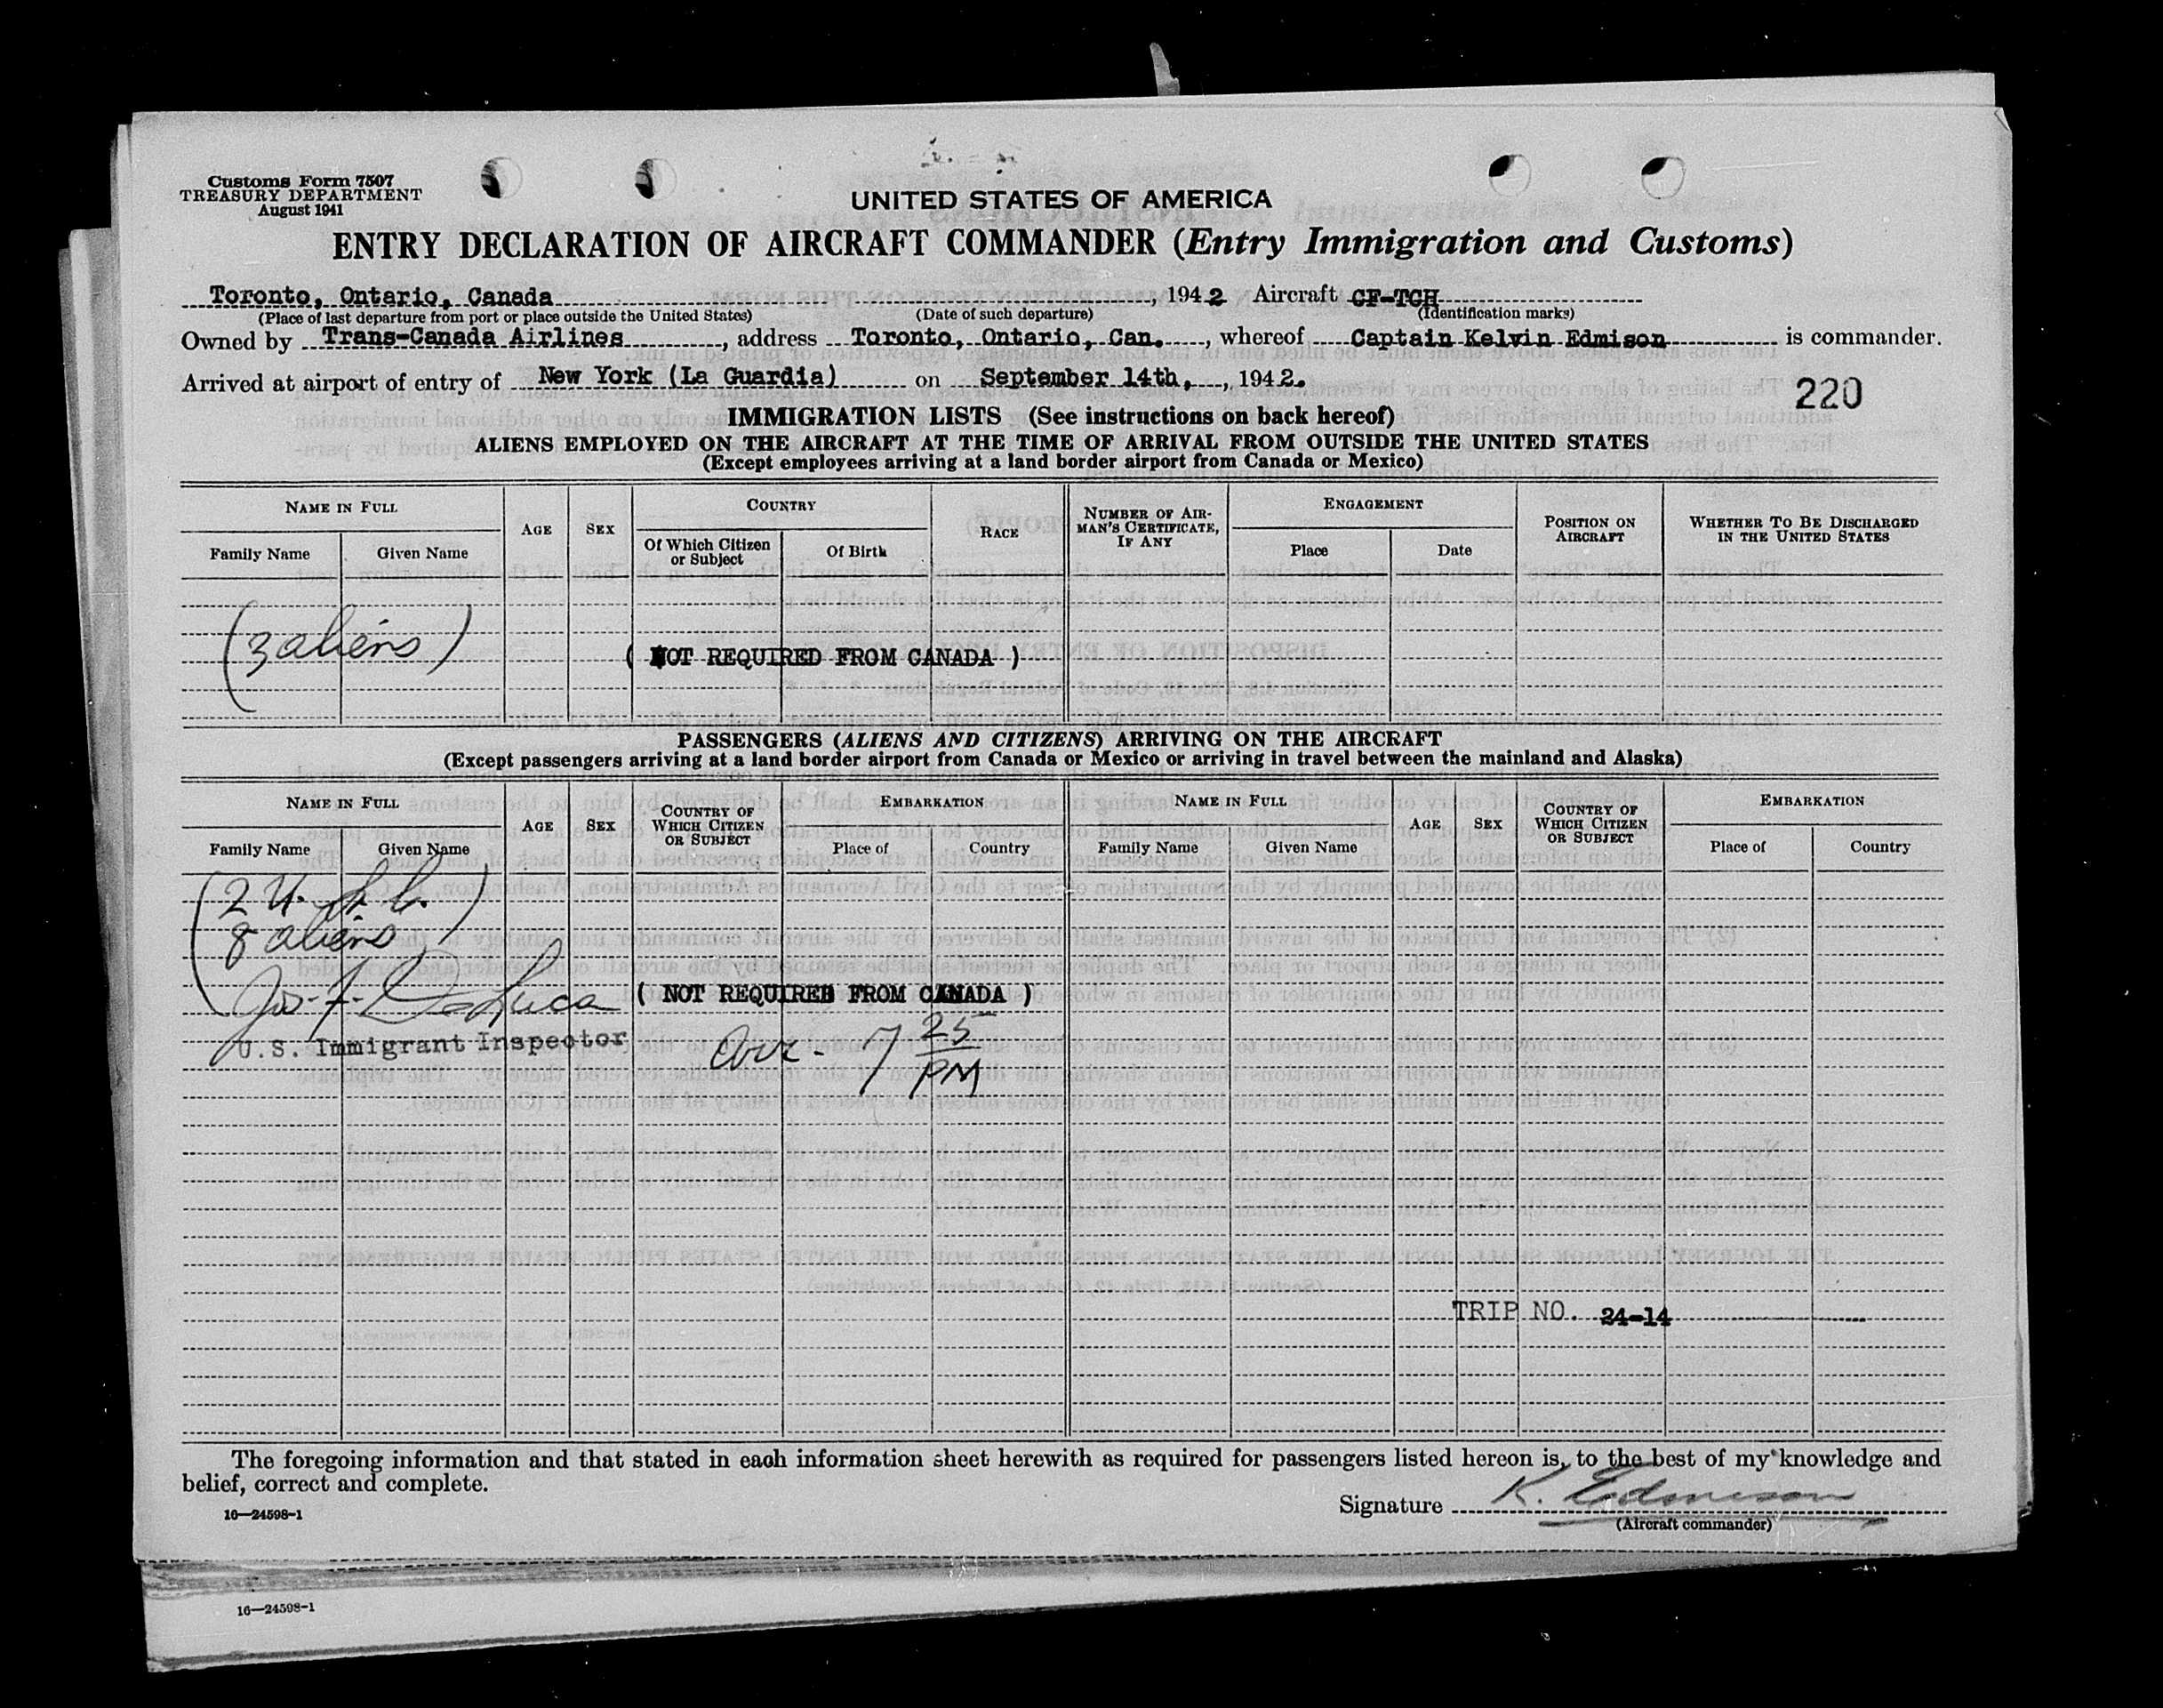 Customs Form 7507
TREASURY DEPARTMENT
August 1941
UNITED STATES OF AMERICA
ENTRY DECLARATION OF AIRCRAFT COMMANDER (Entry Immigration and Customs)
Toronto, Ontario, Canada, 1942 Aircraft CF-TCH
(Place of last departure from port or place outside the United States) (Date of such departure) (Identification marks)
Owned by Trans-Canada Airlines, address Toronto, Ontario, Can., whereof Captain Kelvin Edmison is commander.
Arrived at airport of entry of New York (La Guardia) on September 14th, , 1942.
220
IMMIGRATION LISTS (See instructions on back hereof)
ALIENS EMPLOYED ON THE AIRCRAFT AT THE TIME OF ARRIVAL FROM OUTSIDE THE UNITED STATES
(Except employees arriving at a land border airport from Canada or Mexico)
NAME IN FULL AGE SEX COUNTRY RACE NUMBER OF AIRMAN'S CERTIFICATE, IF ANY ENGAGEMENT POSITION ON AIRCRAFT WHETHER TO BE DISCHARGED IN THE UNITED STATES
Family Name Given Name Of Which Citizen or Subject Of Birth Place Date
(3 aliens)
( NOT REQUIRED FROM CANADA )
PASSENGERS (ALIENS AND CITIZENS) ARRIVING ON THE AIRCRAFT
(Except passengers arriving at a land border airport from Canada or Mexico or arriving in travel between the mainland and Alaska)
NAME IN FULL AGE SEX COUNTRY OF WHICH CITIZEN OR SUBJECT EMBARKATION NAME IN FULL AGE SEX COUNTRY OF WHICH CITIZEN OR SUBJECT EMBARKATION
Family Name Given Name Place of Country Family Name Given Name Place of Country
(2 U.S.C.)
8 aliens
Jos. F. DeLuca ( NOT REQUIRED FROM CANADA )
U.S. Immigrant Inspector
Arr- 7 25 PM
TRIP NO. 24-14
The foregoing information and that stated in each information sheet herewith as required for passengers listed hereon is, to the best of my knowledge and
belief, correct and complete.
Signature K. Edmison
16—24598-1
(Aircraft commander)
16—24598-1